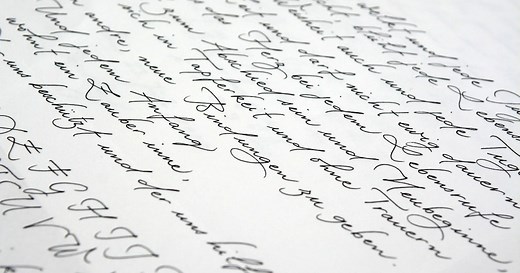 welkt und jede Jug
blüht jede Lebens
auch und jede Tug
und darf nicht ewig dauern
das Herz bei jedem Lebensrufe
zum Abschied sein und Neubeginne,
sich in Tapferkeit und ohne Trauern
andre, neue Bindungen zu geben.
Und jedem Anfang
wohnt ein Zauber inne,
uns beschützt und der uns hilf
E F G H I J
U V W